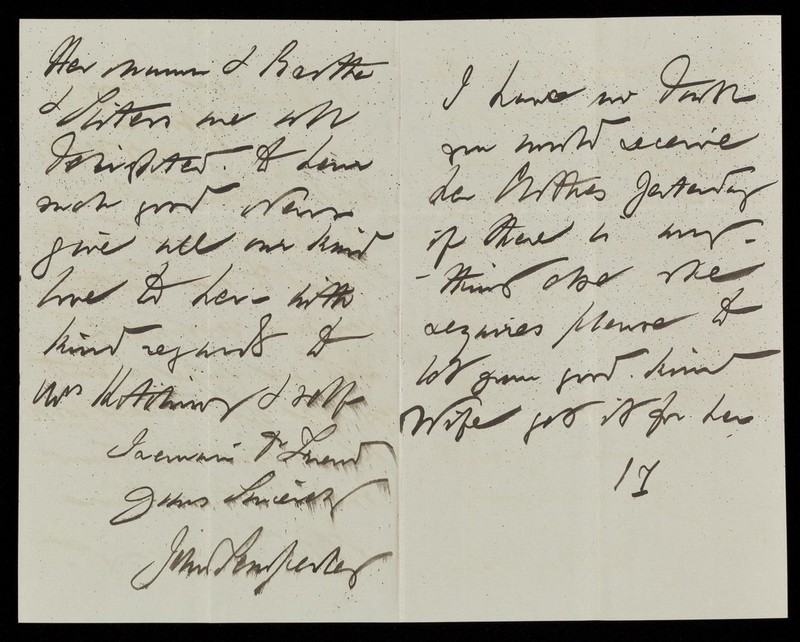 Her mama & Brother
& Sisters are all
delighted. to have
such good News
give all our kind
love to her - with
kind regards to
Mrs Hitching & self
I remain Dr Friend
yours Sincerely
John
I have no doubt
you would receive
her Clothes yesterday
if there is any-
-thing else she
requires please to
let your good kind
Wife get it for her
17